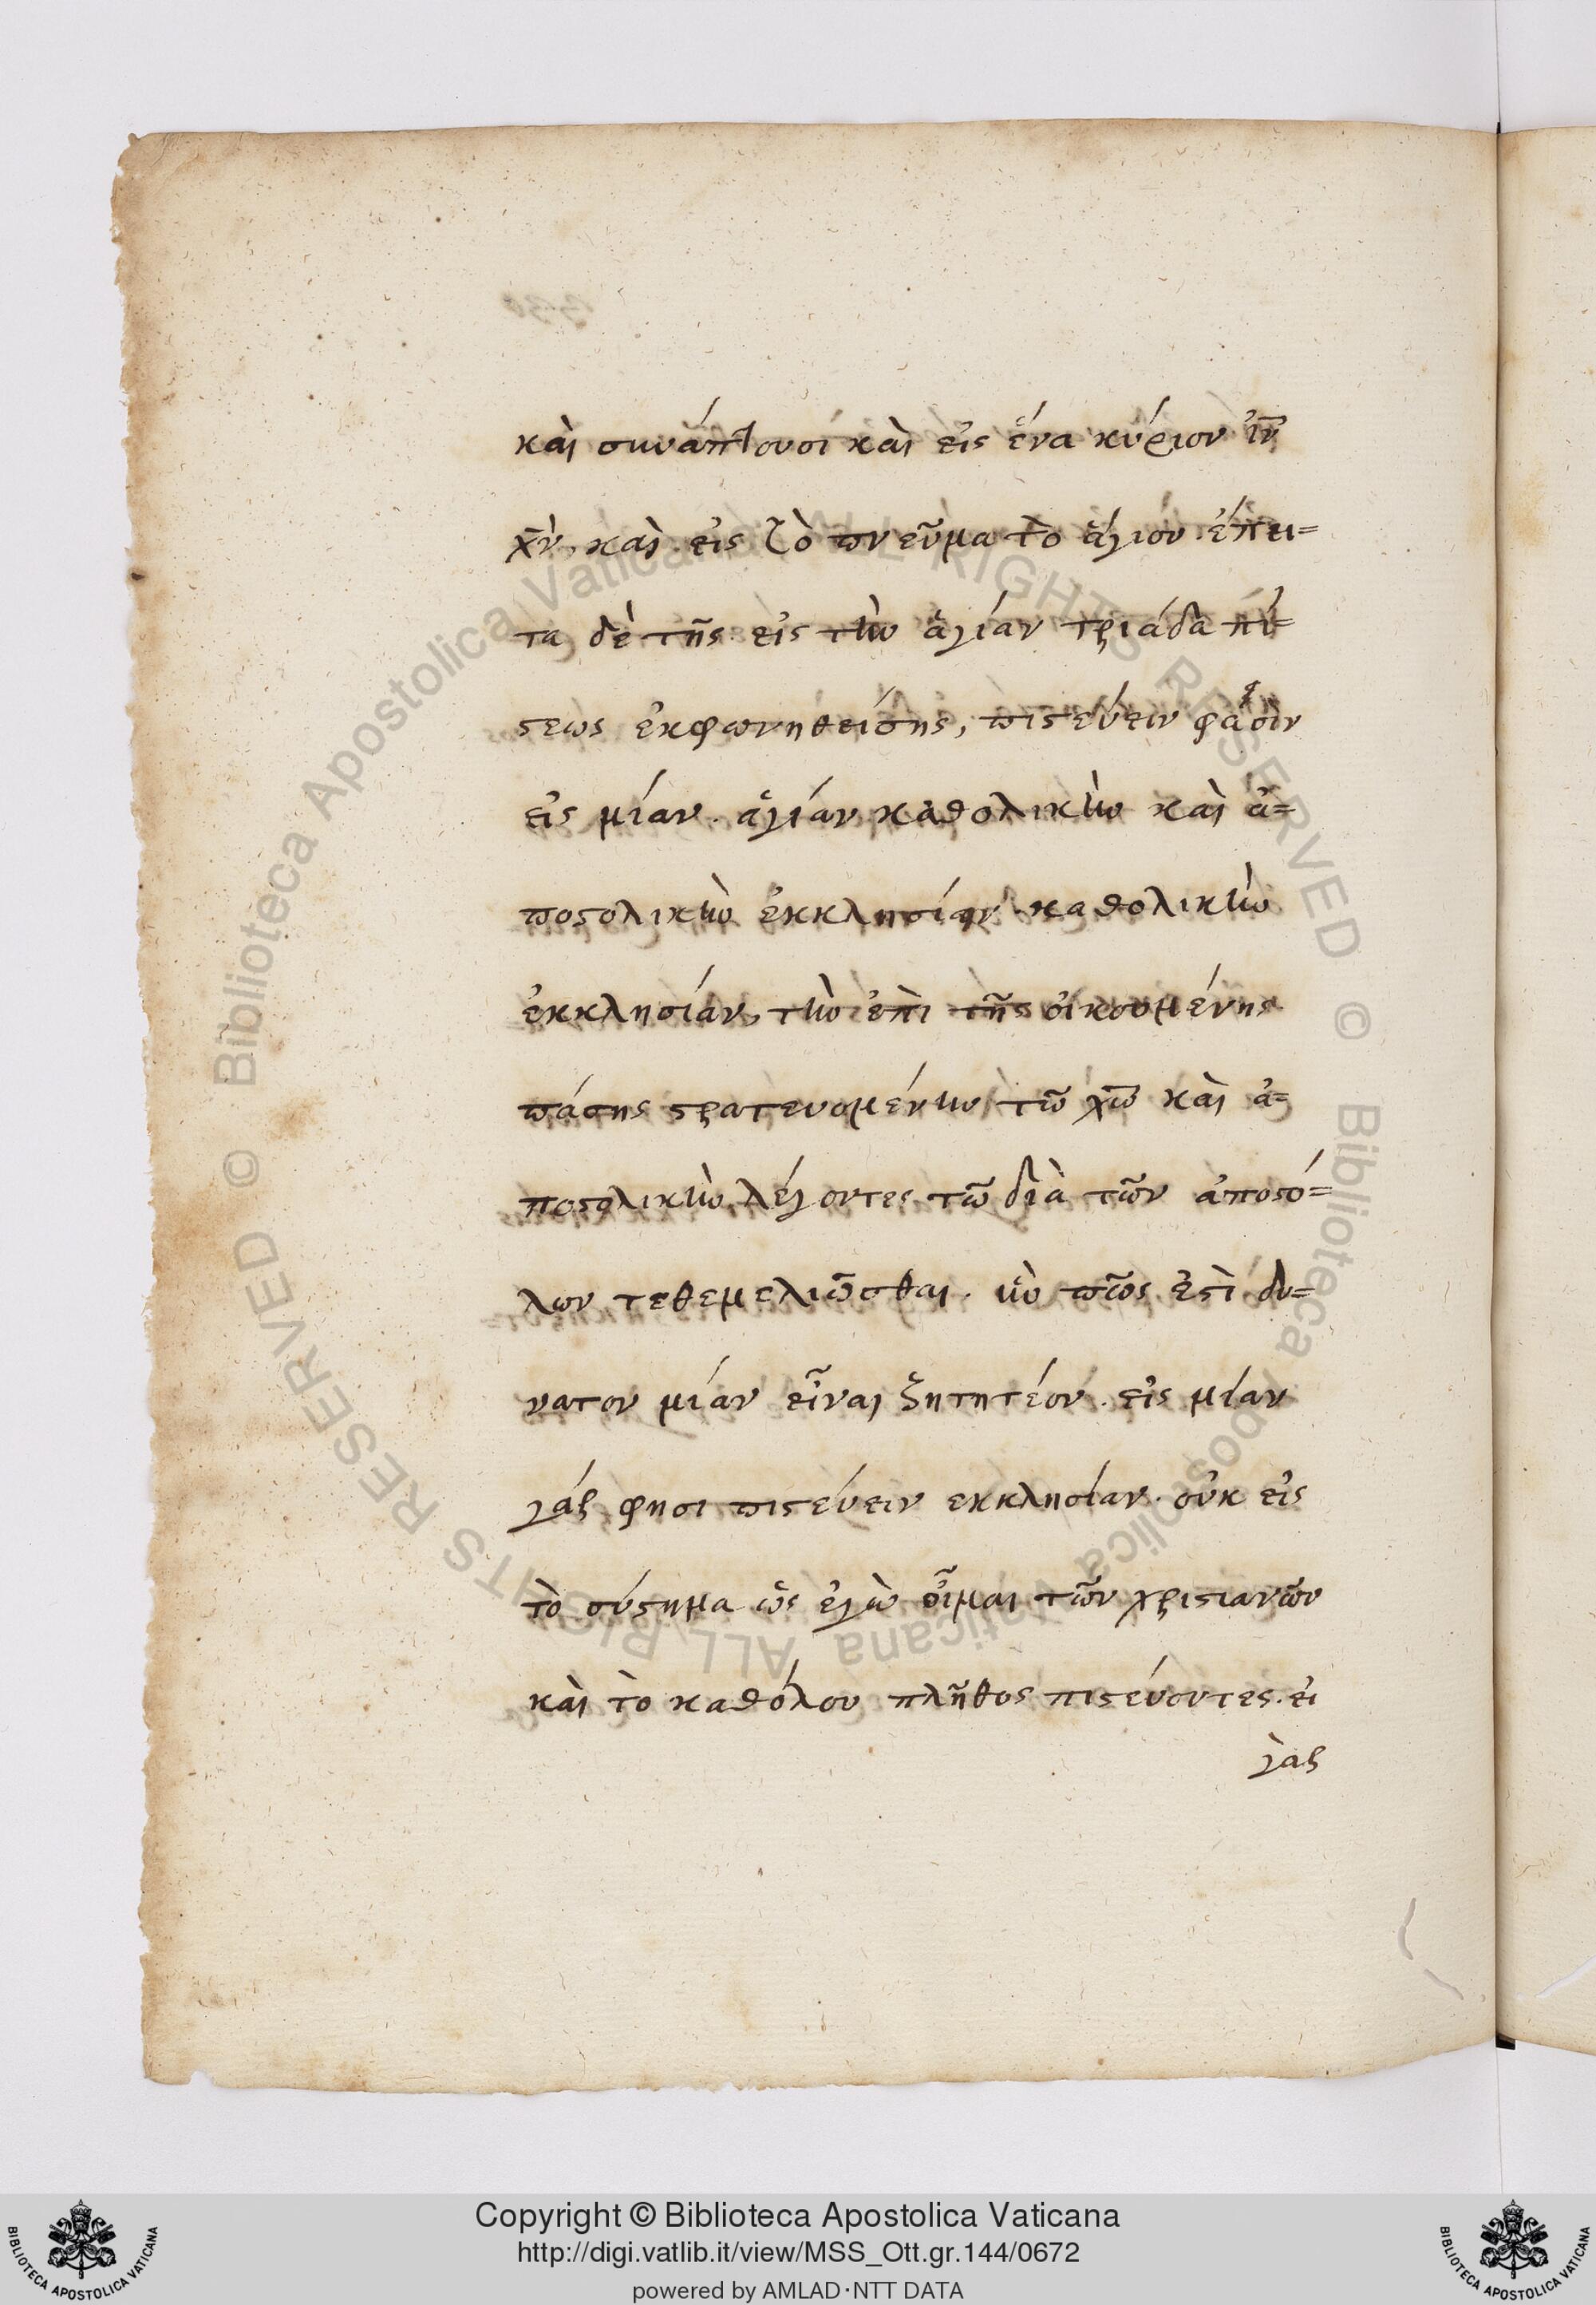 καὶ συνάπτουσί καὶ εἰς ἕνα κύριον ἰν̄
χν̄, καὶ εἰς τὸ πνεῦμα τὸ ἅγιον. ἔπει=
τα δὲ τῆς εἰς τὴν ἁγίαν τριάδα πί=
στεως ἐκφωνηθείσης, πιστεύειν φασὶν
εἰς μίαν. ἁγίαν καθολικὴν καὶ ἀ=
ποστολικὴν ἐκκλησίαν. καθολικὴν
ἐκκλησίαν, τὴν ἐπὶ τῆς οἰκουμένης
πάσης στρατευομένην τῶ χω̄ καὶ ἀ=
ποστολικὴν λέγοντες τῶ διὰ τῶν ἀποστό=
λων τεθεμελιῶσθαι. ἣν πῶς ἐστὶ δυ=
νατον μίαν εἶναι ζητητέον. εἰς μίαν
γάρ φησι πιστεύειν εκκλησίαν. οὐκ εἰς
τὸ σύστημα ὡς ἐγὼ οἶμαι τῶν χριστιανῶν
καὶ τὸ καθόλου πλῆθος πιστεύοντες. εἰ
γὰρ
Copyright © Biblioteca Apostolica Vaticana
http://digi.vatlib.it/view/MSS_Ott.gr.144/0672
powered by AMLAD·NTT DATA
BIBLIOTECA APOSTOLICA VATICANA
BIBLIOTECA APOSTOLICA VATICANA
© Biblioteca Apostolica Vaticana ALL RIGHTS RESERVED © Biblioteca Apostolica Vaticana ALL RIGHTS RESERVED